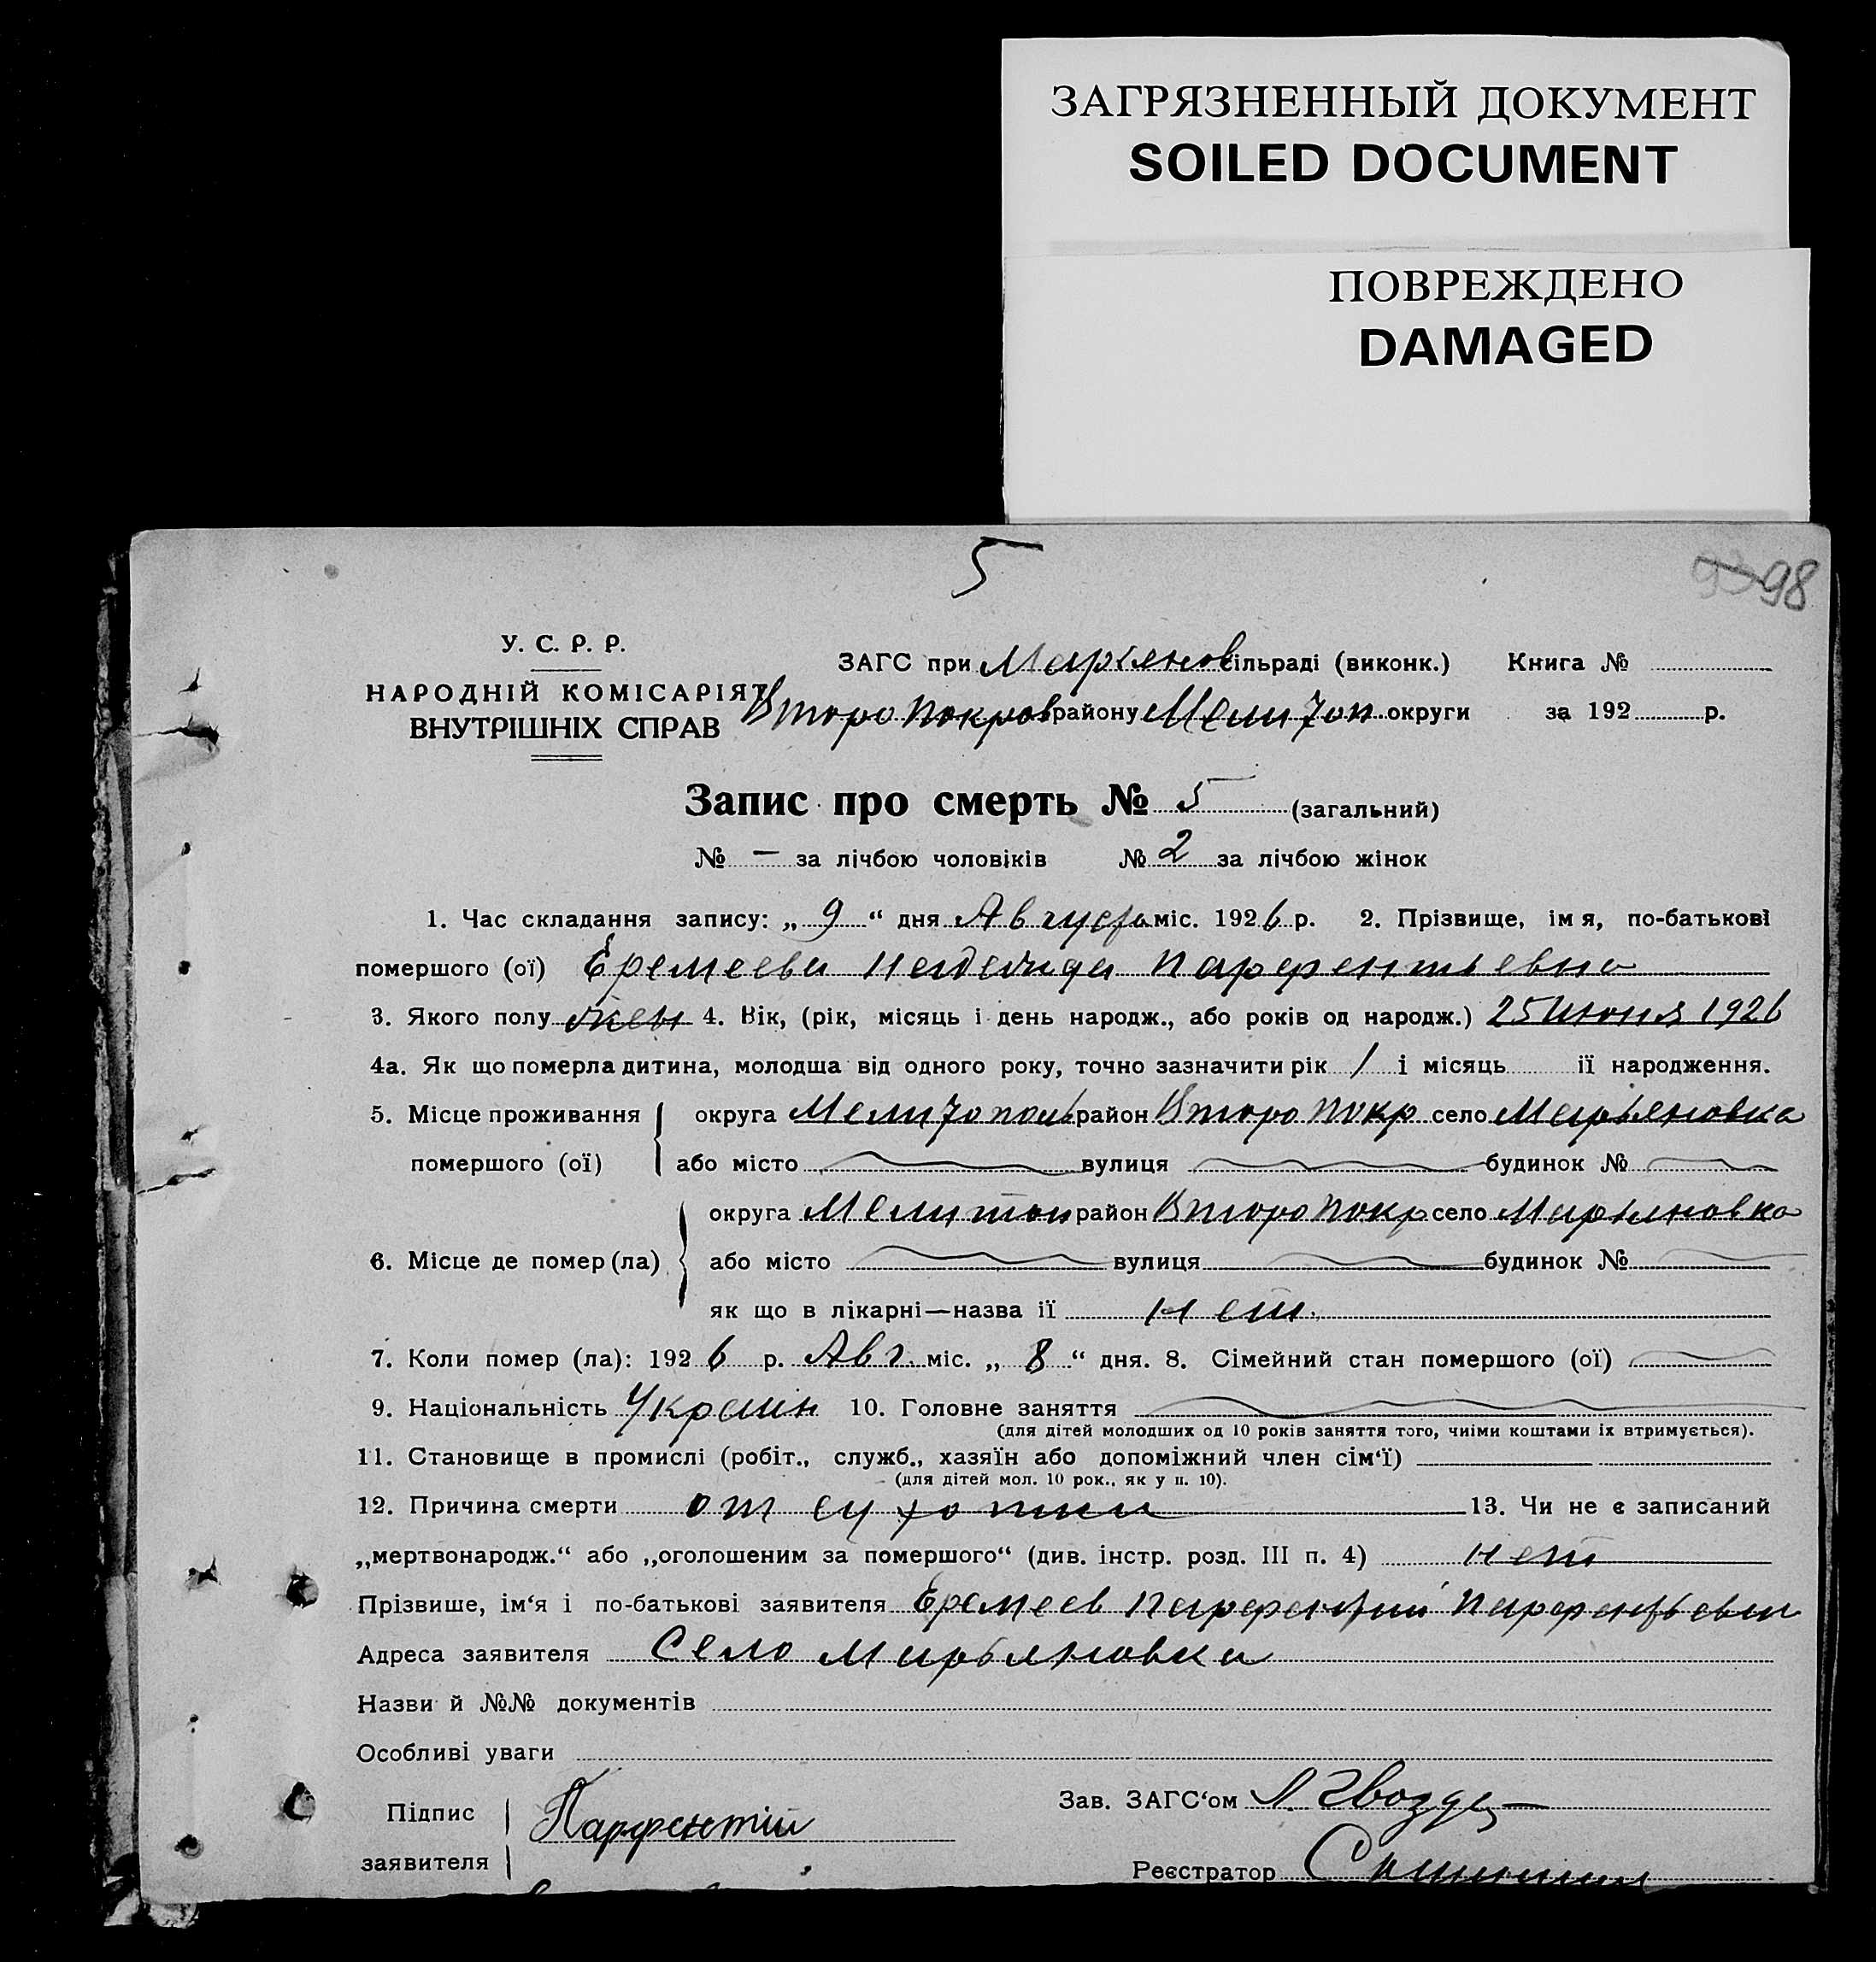 ЗАГРЯЗНЕННЫЙ ДОКУМЕНТ
SOILED DOCUMENT
ПОВРЕЖДЕНО
DAMAGED
5
98
У. С. Р. Р.
НАРОДНІЙ КОМІСАРІЯТ
ВНУТРІШНІХ СПРАВ
ЗАГС при Марьянов сільраді (виконк.) Книга №
Второпокров району Мелитоп округи за 192 р.
Запис про смерть № 5 (загальний)
№ – за лічбою чоловіків № 2 за лічбою жінок
1. Час складання запису: „ 9 “ дня Августа міс. 1926 р. 2. Прізвище, імя, по-батькові
помершого (ої) Еремеева Надежда Парфентьевна
3. Якого полу жен 4. Вік, (рік, місяць і день народж., або років од народж.) 25 июня 1926
4а. Як що померла дитина, молодша від одного року, точно зазначити рік / і місяць її народження.
5. Місце проживання округа Мелитополь район Второпокр село Марьяновка
помершого (ої) або місто вулиця будинок №
округа Мелитоп район Второпокр село Марьяновка
6. Місце де помер (ла) або місто вулиця будинок №
як що в лікарні—назва ії нет.
7. Коли помер (ла): 1926 р. Авг. міс. „ 8 “ дня. 8. Сімейний стан помершого (ої)
9. Національність Украин 10. Головне заняття
(для дітей молодших од 10 років заняття того, чиїми коштами іх втримується).
11. Становище в промислі (робіт., служб., хазяїн або допоміжний член сім‘ї)
(для дітей мол. 10 рок., як у п. 10).
12. Причина смерти от сухотки 13. Чи не є записаний
„мертвонародж.“ або „оголошеним за помершого“ (див. інстр. розд. III п. 4) нет
Прізвише, ім‘я і по-батькові заявителя Еремеев Парфентий Парфентьевич
Адреса заявителя Село Марьяновка
Назви й №№ документів
Особливі уваги
Підпис
заявителя
Парфентій
Зав. ЗАГС‘ом
Реєстратор